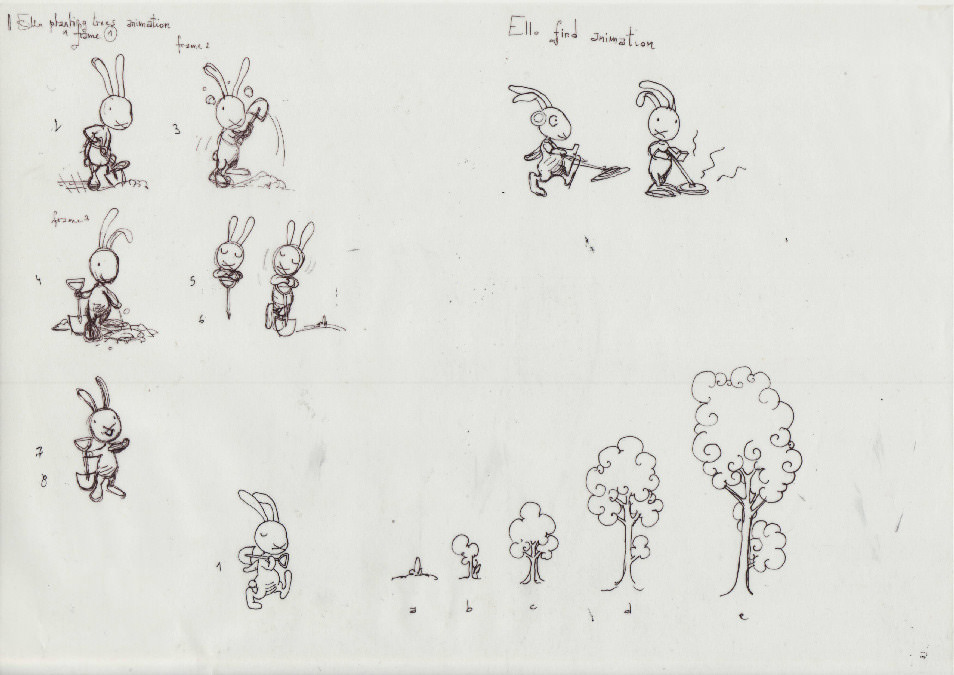 Ello planting trees animation
frame 1
frame 2
2
3
frame 3
4
5
6
7
8
1
Ello find animation
a
b
c
d
e
2